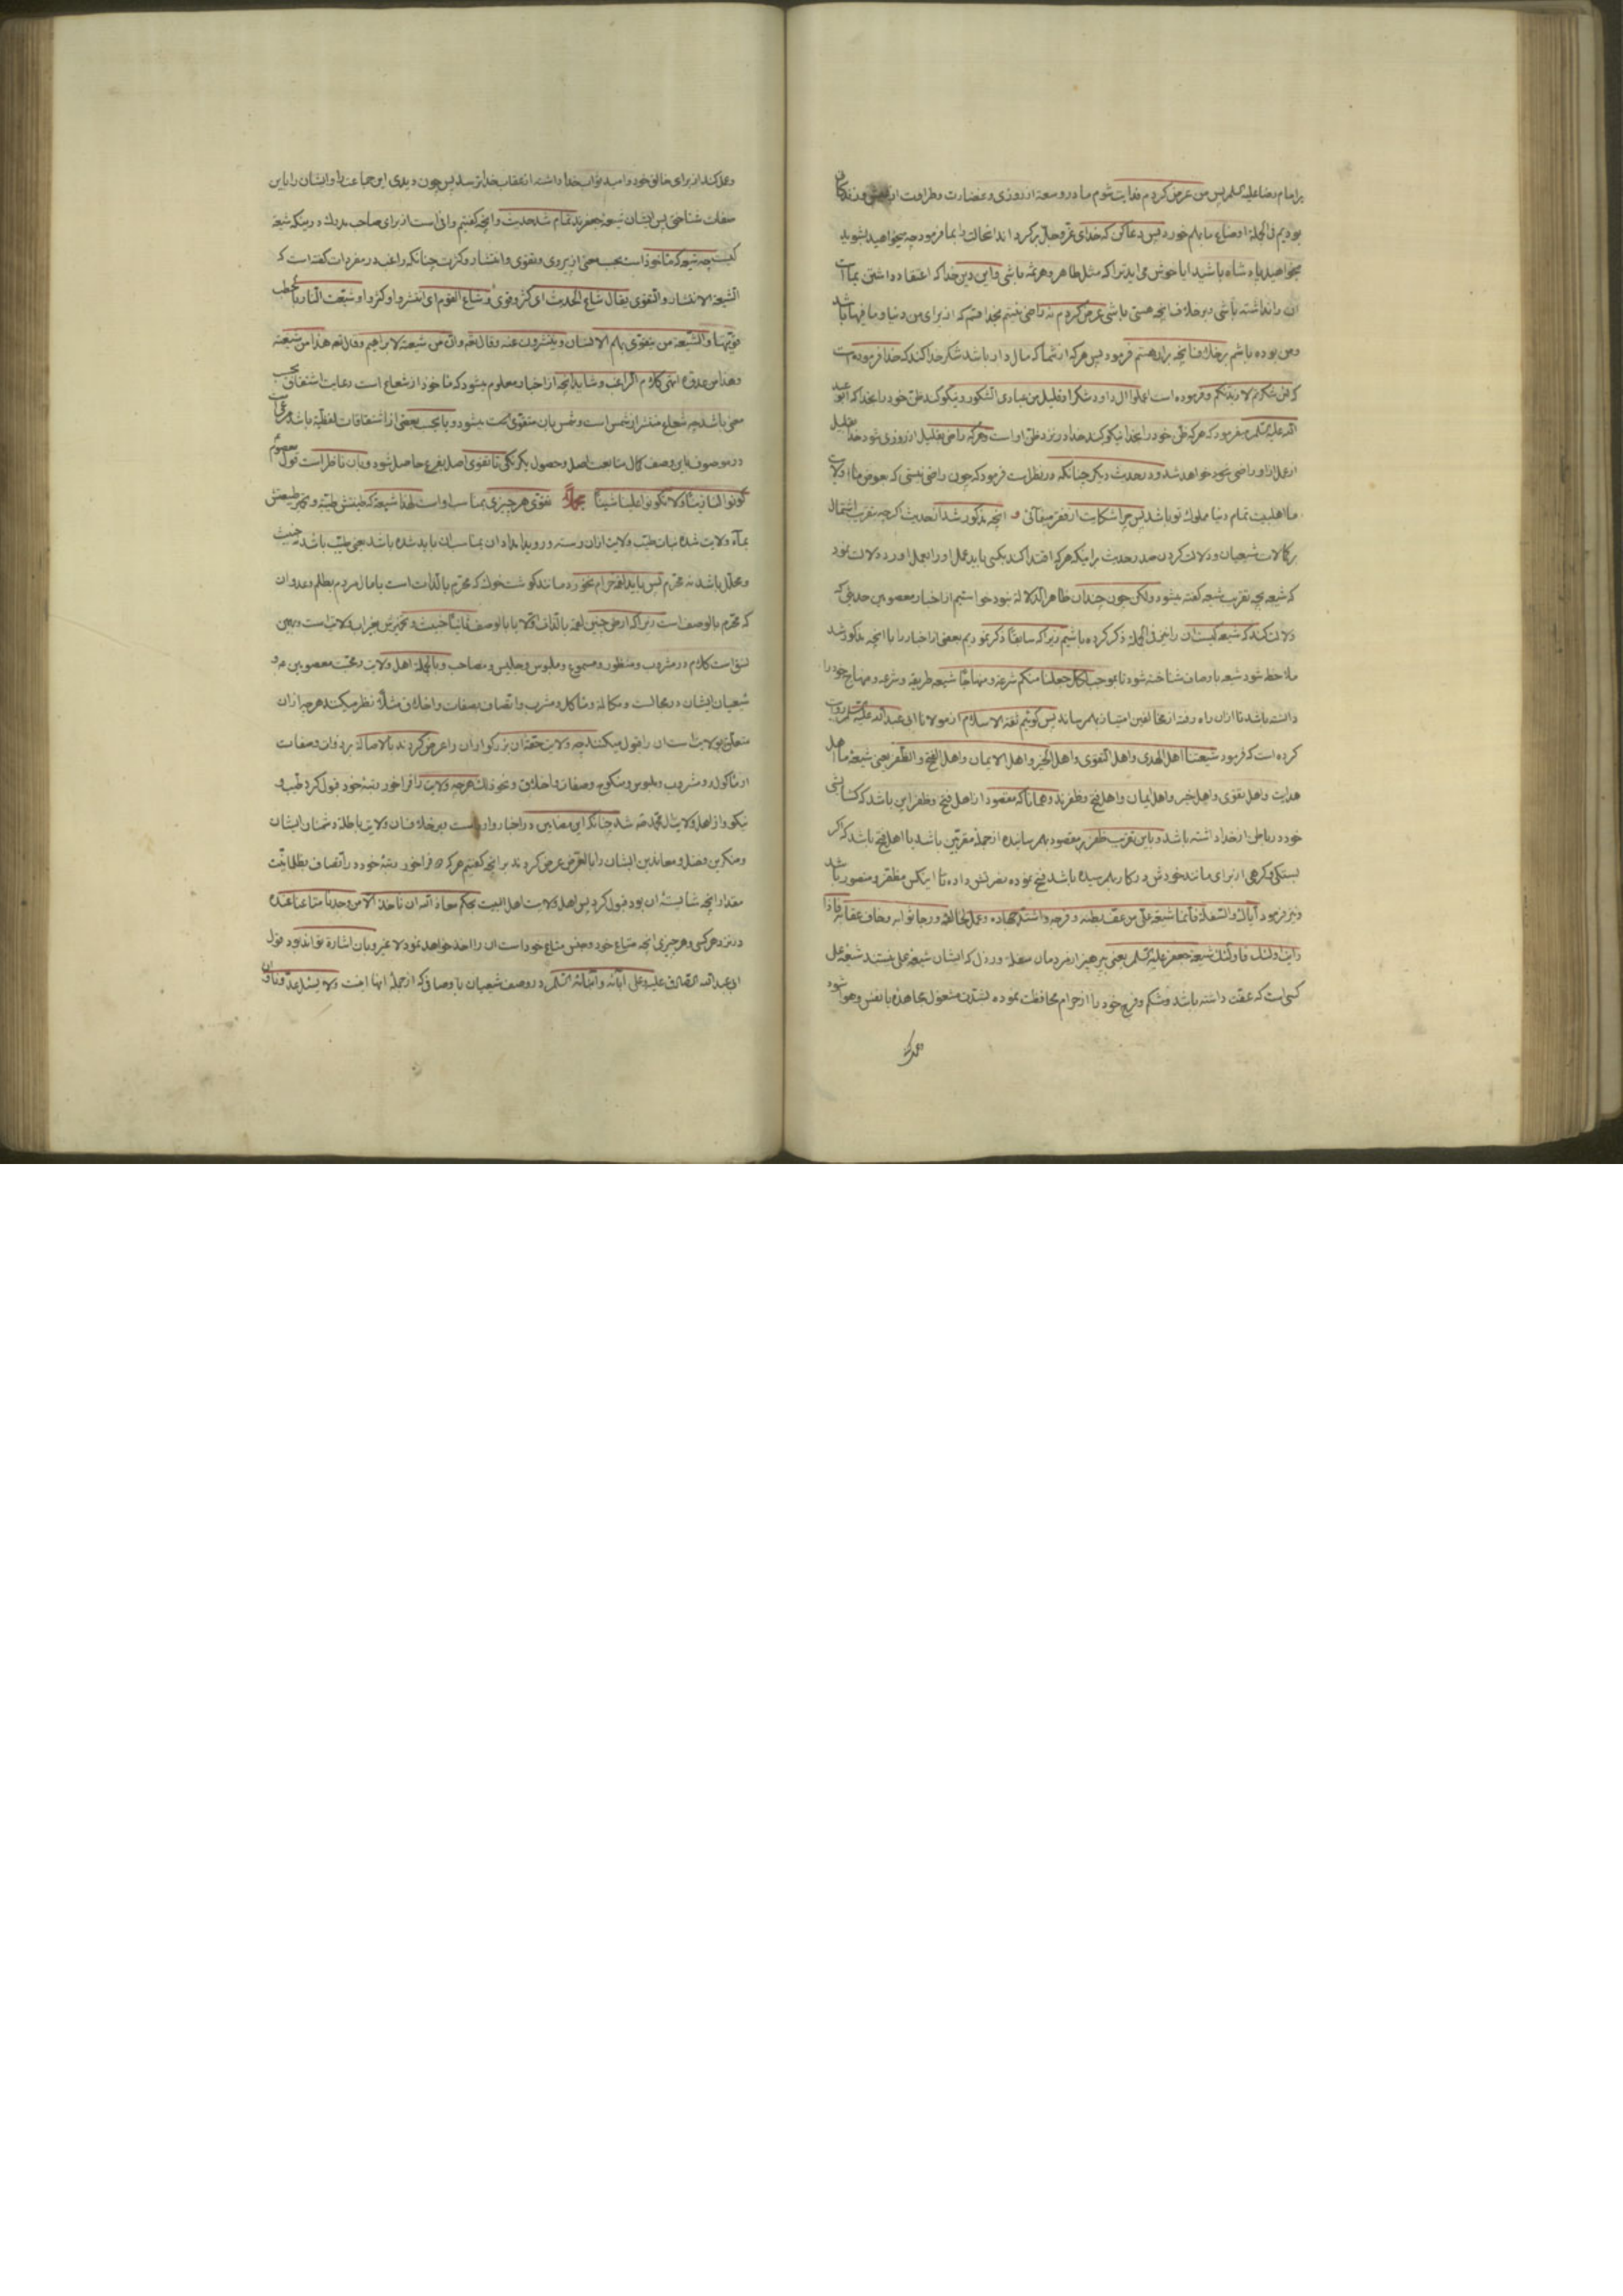 برامام رضا علیه السلم پس من عرض کردم فدایت شوم ما در وسعة از روزی و غضارت و طراوت از عیش و زندکانی
بودیم فی الجمله اوضاع ما بهم خورد پس دعا کن که خدای عز و جل برکرداند انحالت را بما فرمود چه میخواهید بشوید
میخواهید پادشاه باشید ایا خوش می اید ترا که مثل طاهر و هرثمه باشی و این دین خدا که اعتقاد داشتن بما است
ان را نداشته باشی و بر خلاف انچه هستی باشی عرض کردم نه راضی نیستم بخدا قسم که از برای من دنیا و ما فیها باشد
و من بوده باشم بر خلاف انچه بران هستم فرمود پس هر که از شما که مال دار باشد شکر خدا کند که خدا فرموده است
که لئن شکرتم لازیدنکم و فرموده است اعملوا ال داود شکرا و قلیل من عبادی الشکور و نیکو کند ظن خود را بخدا که ابو عبد
الله علیه السلم میفرمود که هر که ظن خود را بخدا نیکو کند خدا در نزد ظن او است و هر که راضی بقلیل از روزی شود خدا بقلیل
از عمل از او راضی خواهد شد و در حدیث دیکر چنانکه در نظر است فرمود که چون راضی نیستی که بعوض ما و ولایت
ما اهلبیت تمام دنیا مملوک تو باشد پس چرا شکایت از فقر میفائی و انچه مذکور شد از حدیث اکر چه بتقریب اشتمال
بر کمالات شیعیان و دلالت کردن صدر حدیث براینکه هر که اقتدا کند بکسی باید عمل او را بعمل اورد دلالت نمود
که شیعه بچه تقریب شیعه کفته میشود ولکن چون چندان ظاهر الدلالة نبود خواستیم از اخبار معصومین حدیثی که
دلالت کند که شیعه کیست ان را نیز فی الجمله ذکر کرده باشیم زیرا که سابقا ذکر نمودیم بعضی از اخبار را با انچه مذکور شد
ملاحظه شود شیعه باوصاف شناخته شود تا بموجب لکل جعلنا منکم شرعة و منهاجا شیعه طریقه و شرعه و منهاج خود را
دانسته باشد تا ازان راه رفته از مخالفین امتیاز بهم رساند پس کوئیم ثقة الاسلام از مولانا ابی عبدالله علیه السلم روایت
کرده است که فرمود شیعتنا اهل الهدی و اهل التقوی و اهل الخیر و اهل الایمان و اهل الفتح و الظفر یعنی شیعهٔ ما اهل
هدایت و اهل تقوی و اهل خیر و اهل ایمان و اهل فتح و ظفرند و همانا که مقصود از اهل فتح و ظفر این باشد که کشایشی
خود در باطن از خدا داشته باشد و باین تقریب ظفر بر مقصود بهم رسانیده از جمله مقربین باشد یا اهل فتح باشد که اکر
بستکی و کرهی از برای مانند خودش در کار بهم رسیده باشد فتح نموده بفرش داده تا اینکس مظفر و منصور باشد
و نیز فرمود ایاک و السفلة فانما شیعة علی من عف بطنه و فرجه و اشتد جهاده و عمل لخالقه و رجا ثوابه و خاف عقابه فاذا
رایت اولئک فاولئک شیعة جعفر علیه السلم یعنی بپرهیز از مردمان سفله و رذل که ایشان شیعهٔ علی نیستند شیعهٔ علی
کسی است که عفت داشته باشد و شکم و فرج خود را از حرام محافظت نموده بشدت مشغول بمجاهده با نفس و هوا شود
و عمل کند
و عمل کند از برای خالق خود و امید بثواب خدا داشته از عقاب خدا بترسد پس چون دیدی این جماعت را و ایشان را باین
صفات شناختی پس ایشان شیعهٔ جعفرند تمام شد حدیث و انچه کفتیم وافی است از برای صاحب مدرک در اینکه شیعه
کیست چه شیعه که ماخوذ است بحسب معنی از پیروی و تقوی و انتشار و کثرت چنانکه راغب در مفردات کفته است که
الشیعة الانتشار و التقوی یقال شاع الحدیث ای کثر و قوی و شاع القوم ای انتشروا و کثروا و شیعت النار بالحطب
قویتها و الشیعة من یتقوی بهم الانسان و ینتشرون عنه و قال تعه و ان من شیعته لابراهیم و قال تعه هذا من شیعته
و هذا من عدوه انتهی کلام الراغب و شاید انچه از اخبار معلوم میشود که ماخوذ از شعاع است رعایت اشتقاق بحسب
معنی باشد چه شعاع منتشر از شمس است و شمس بان متقوی کشت میشود و یا بحسب بعضی از اشتقاقات لفظیه باشد
در موصوف باین وصف کمال متابعت اصل و حصول یکرنکی تا تقوی اصل بفرع حاصل شود و بان ناظر است قول معصوم
کونوا لنا زینا و لا تکونوا علینا شینا تقوی هر چیزی بمناسب او است لهذا شیعهٔ که طینتش طیبه و تخمیر طینتش
بماء ولایت شده نبات طیب ولایت ازان رسته و روییده امداد ان بمناسب ان باید شده باشد یعنی طیب باشد نه خبیث
و محلل باشد نه محرم پس باید لقمه حرام نخورد مانند کوشت خوک که محرم بالذات است یا مال مردم بظلم و عدوان
که محرم بالوصف است زیرا که ارض چنین لقمه بالذات اولا یا بالوصف ثانیا خبیث و تخمیرش بغیر اب ولایت است و بهمین
نسق است کلام در مشروب و منظور و مسموع و ملبوس و جلیس و مصاحب و بالجمله اهل ولایت و محبت معصومین ع و
شیعیان ایشان در مجالست و مکالمه و ماکل و مشرب و اتصاف بصفات و اخلاق مثلا نظر میکنند هر چه ازان
متعلق بولایت است ان را قبول میکنند چه ولایت حقهٔ ان بزرکواران را عرض کردند بالاصاله بر ذوات و صفات
از ماکول و مشروب و ملبوس و منکوح و صفات و اخلاق و نحو ذلک هر چه ولایت را فراخور رتبهٔ خود قبول کرد طیب و
نیکو و از اهل ولایت ال محمد ص شد چنانکه این مضامین در اخبار وارد است و بر خلاف ان ولایت باطلهٔ دشمنان ایشان
و منکرین فضل و معاندین ایشان را بالعرض عرض کردند بر انچه کفتیم هر که فراخور رتبهٔ خود در اتصاف بظلمانیت
مقدار انچه شایستهٔ ان بود قبول کرد پس اهل ولایت اهل البیت بحکم معاذ الله ان ناخذ الا من وجدنا متاعنا عنده
در نزد هر کس و هر چیزی انچه متاع خود و جنس متاع خود است ان را اخذ خواهد نمود لا غیر و بان اشاره تواند بود قول
ابی عبدالله الصادق علیه و علی آبائه و ابنائه السلم در وصف شیعیان باوصافی که از جمله انها اینست و لا یسئل عدونا و ان